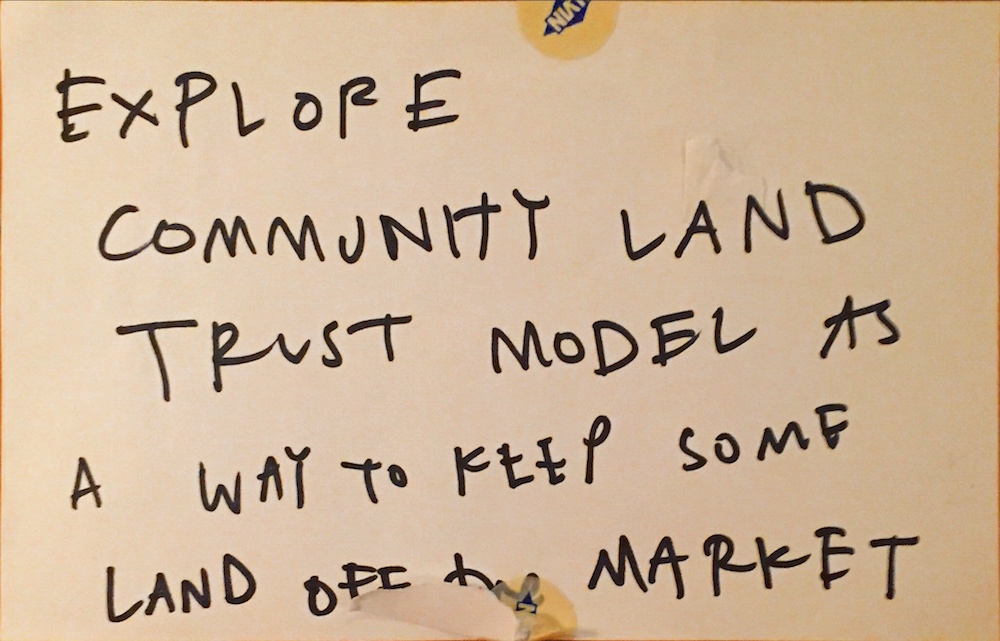 EXPLORE
COMMUNITY LAND
TRUST MODEL AS
A WAY TO KEEP SOME
LAND OFF MARKET